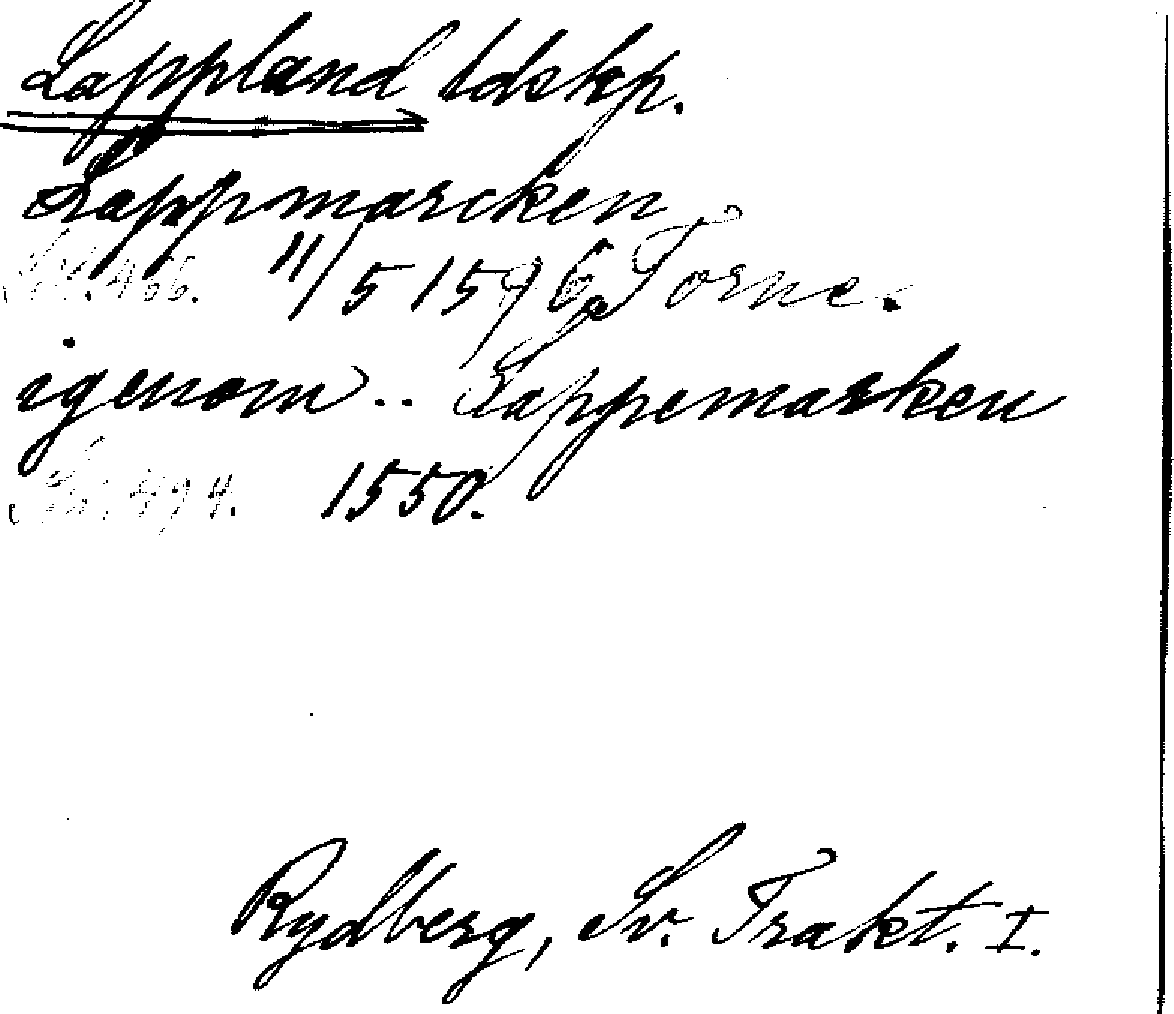 Lappland ldskp.
Lappmarcken
466. 11/5 1596 Torne.
igenom .. Lappemarken
494. 1550.
Rydberg, Sv. Trakt. I.